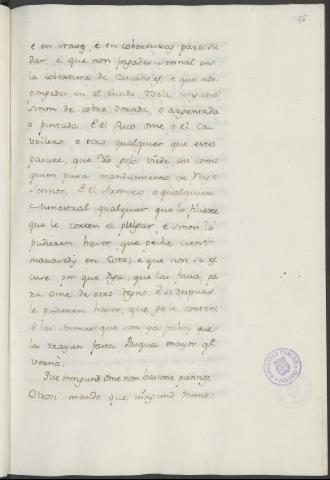 56
e en vraug, e en coberturas para su
dar, e que non fagades sennal en
la cobertura de cascabeles, e que non
pongades en el Escudo Bocla, ninguna
sinon de cobre dorada, o argentada
o pintada. E el Rico ome o el Ca-
vallero, o otro qualquier que esto
pasare, que Yo gelo viede, asi como
quien pasa mandamiento de Rey e
Sennor. E el Armero o qualquier
Menestral qualquier que lo ficiere
que le corten el pulgar, e sinon lo
pudieren haver que peche cient
maravedis en Coto; e que non se es
cuse por que diga, que las facia pa
ra ome de otro Regno. E si despues
le pudieren haver, que ge le corten
E las armas que son ya fechas que
las trayan fasta Pasqua mayor q
verná.
Que ningund ome non bastone pannos
Otrosi mando que ningund home